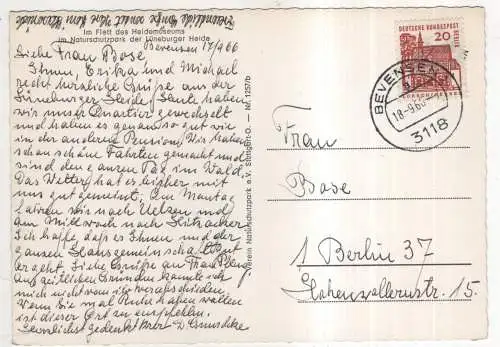 Im Flett des Heidemuseums
im Naturschutzpark der Lüneburger Heide
Bevensen 17/9 66
Liebe Frau Bose,
Ihnen, Erika und Michael
recht herzliche Grüße aus der
Lüneburger Heide. Heute haben
wir unser Quartier gewechselt
und haben es genauso gut wie
in der anderen Pension. Wir haben
schon schöne Fahrten gemacht und
sind den ganzen Tag im Wald.
Das Wetter hat es bisher mit
uns gut gemeint. Am Montag
fahren wir nach Uelzen und
am Mittwoch nach Hitzacker.
Ich hoffe daß es Ihnen und der
ganzen Hausgemeinschaft
geht. Liebe Grüße an Frau
Aus zeitlichen Gründen konnte ich
mich nicht von ihr verabschieden.
Wenn Sie mal Ruhe haben wollen
ist dieser Ort zu empfehlen.
Herzlichst gedenkt Ihrer
Verein Naturschutzpark e.V. Stuttgart-O. - Nr. 1257b
DEUTSCHE BUNDESPOST
BERLIN
20
BEVENSEN
18-9.66
3118
Frau
Bose
1 Berlin 37
Hohenzollernstr. 15.